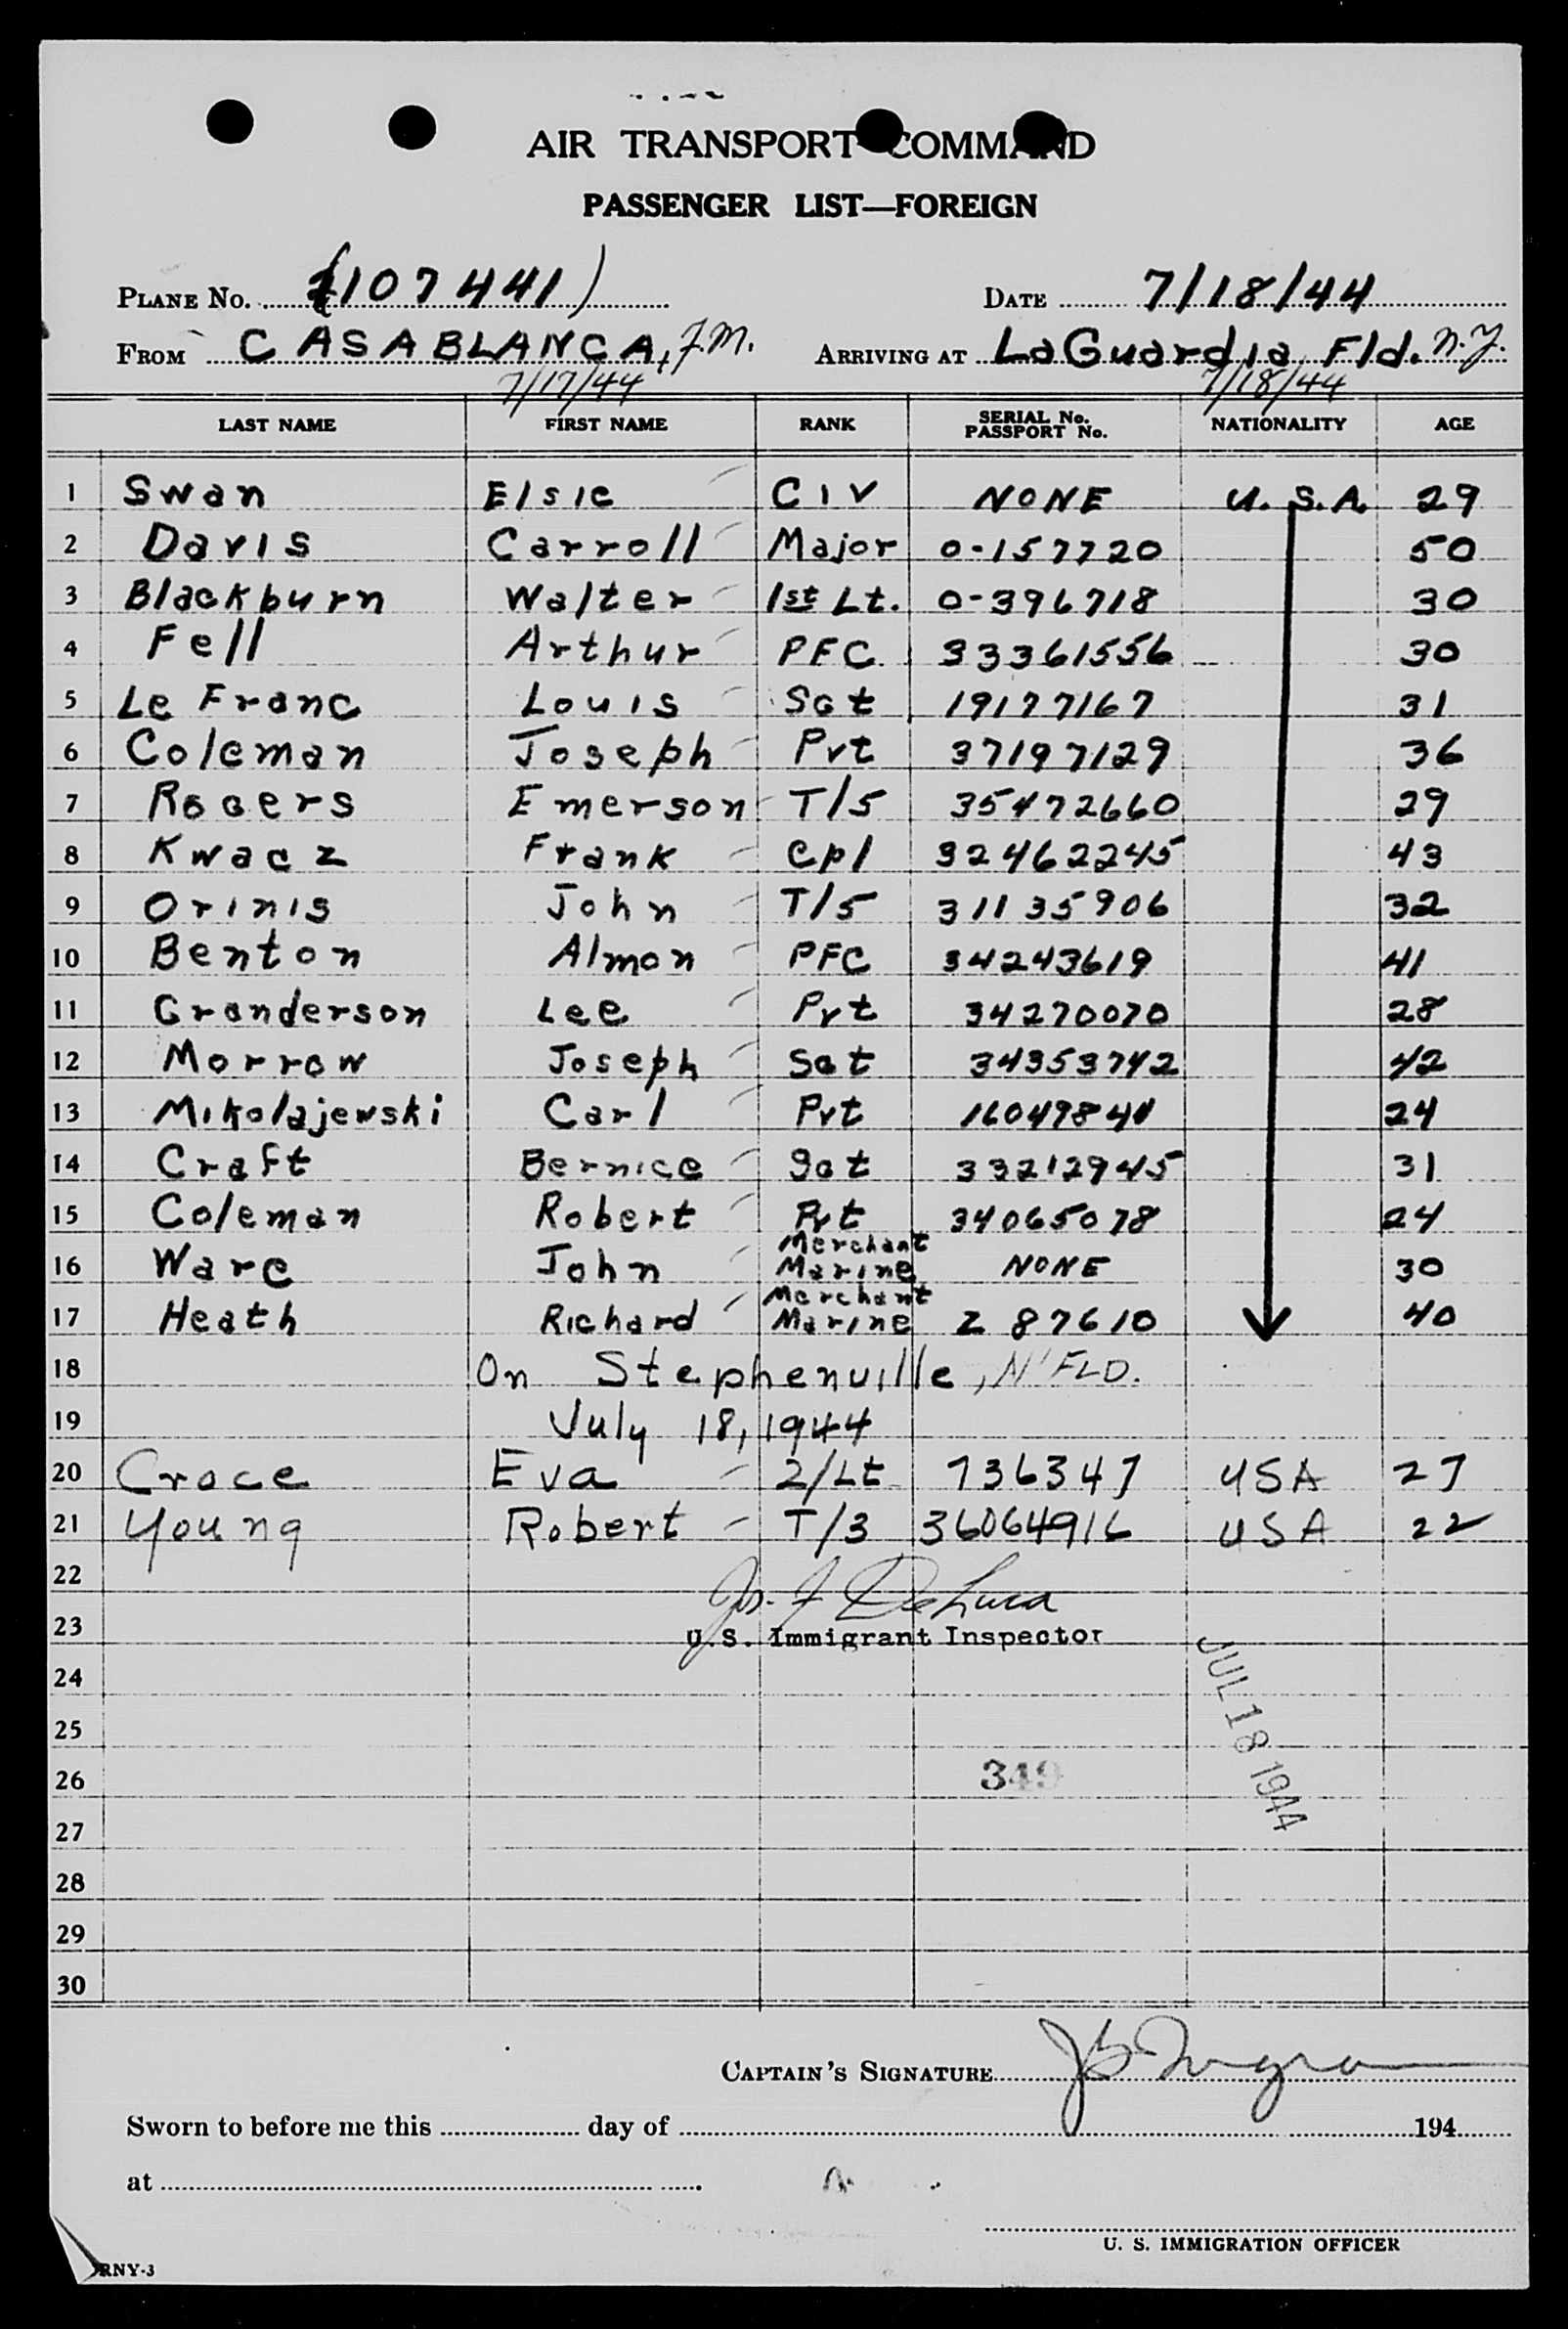 AIR TRANSPORT COMMAND
PASSENGER LIST—FOREIGN
PLANE No. (107441) DATE 7/18/44
FROM CASABLANCA, F.M. ARRIVING AT LaGuardia Fld. N.Y.
7/17/44 7/18/44
LAST NAME FIRST NAME RANK SERIAL No. PASSPORT No. NATIONALITY AGE
1 Swan Elsie CIV NONE U.S.A. 29
2 Davis Carroll Major 0-157720 50
3 Blackburn Walter 1st Lt. 0-396718 30
4 Fell Arthur PFC 33361556 30
5 Le Franc Louis SGt 19177167 31
6 Coleman Joseph Pvt 37197129 36
7 RoGers Emerson T/5 35472660 29
8 Kwacz Frank Cpl 32462245 43
9 Orinis John T/5 31135906 32
10 Benton Almon PFC 34243619 41
11 Granderson Lee Pvt 34270070 28
12 Morrow Joseph SGt 34353742 42
13 Mikolajewski Carl Pvt 16049841 24
14 Craft Bernice SGt 33212945 31
15 Coleman Robert Pvt 34065078 24
16 Ware John Merchant Marine NONE 30
17 Heath Richard Merchant Marine Z 87610 40
18 On Stephenville, N'FLD.
19 July 18, 1944
20 Croce Eva 2/Lt 736347 USA 27
21 Young Robert T/3 36064916 USA 22
22 Jos. F DeLuca
23 U.S. Immigrant Inspector
24
25
JUL 18 1944
26 349
27
28
29
30
CAPTAIN'S SIGNATURE
Sworn to before me this day of 194
at
U. S. IMMIGRATION OFFICER
RNY-3